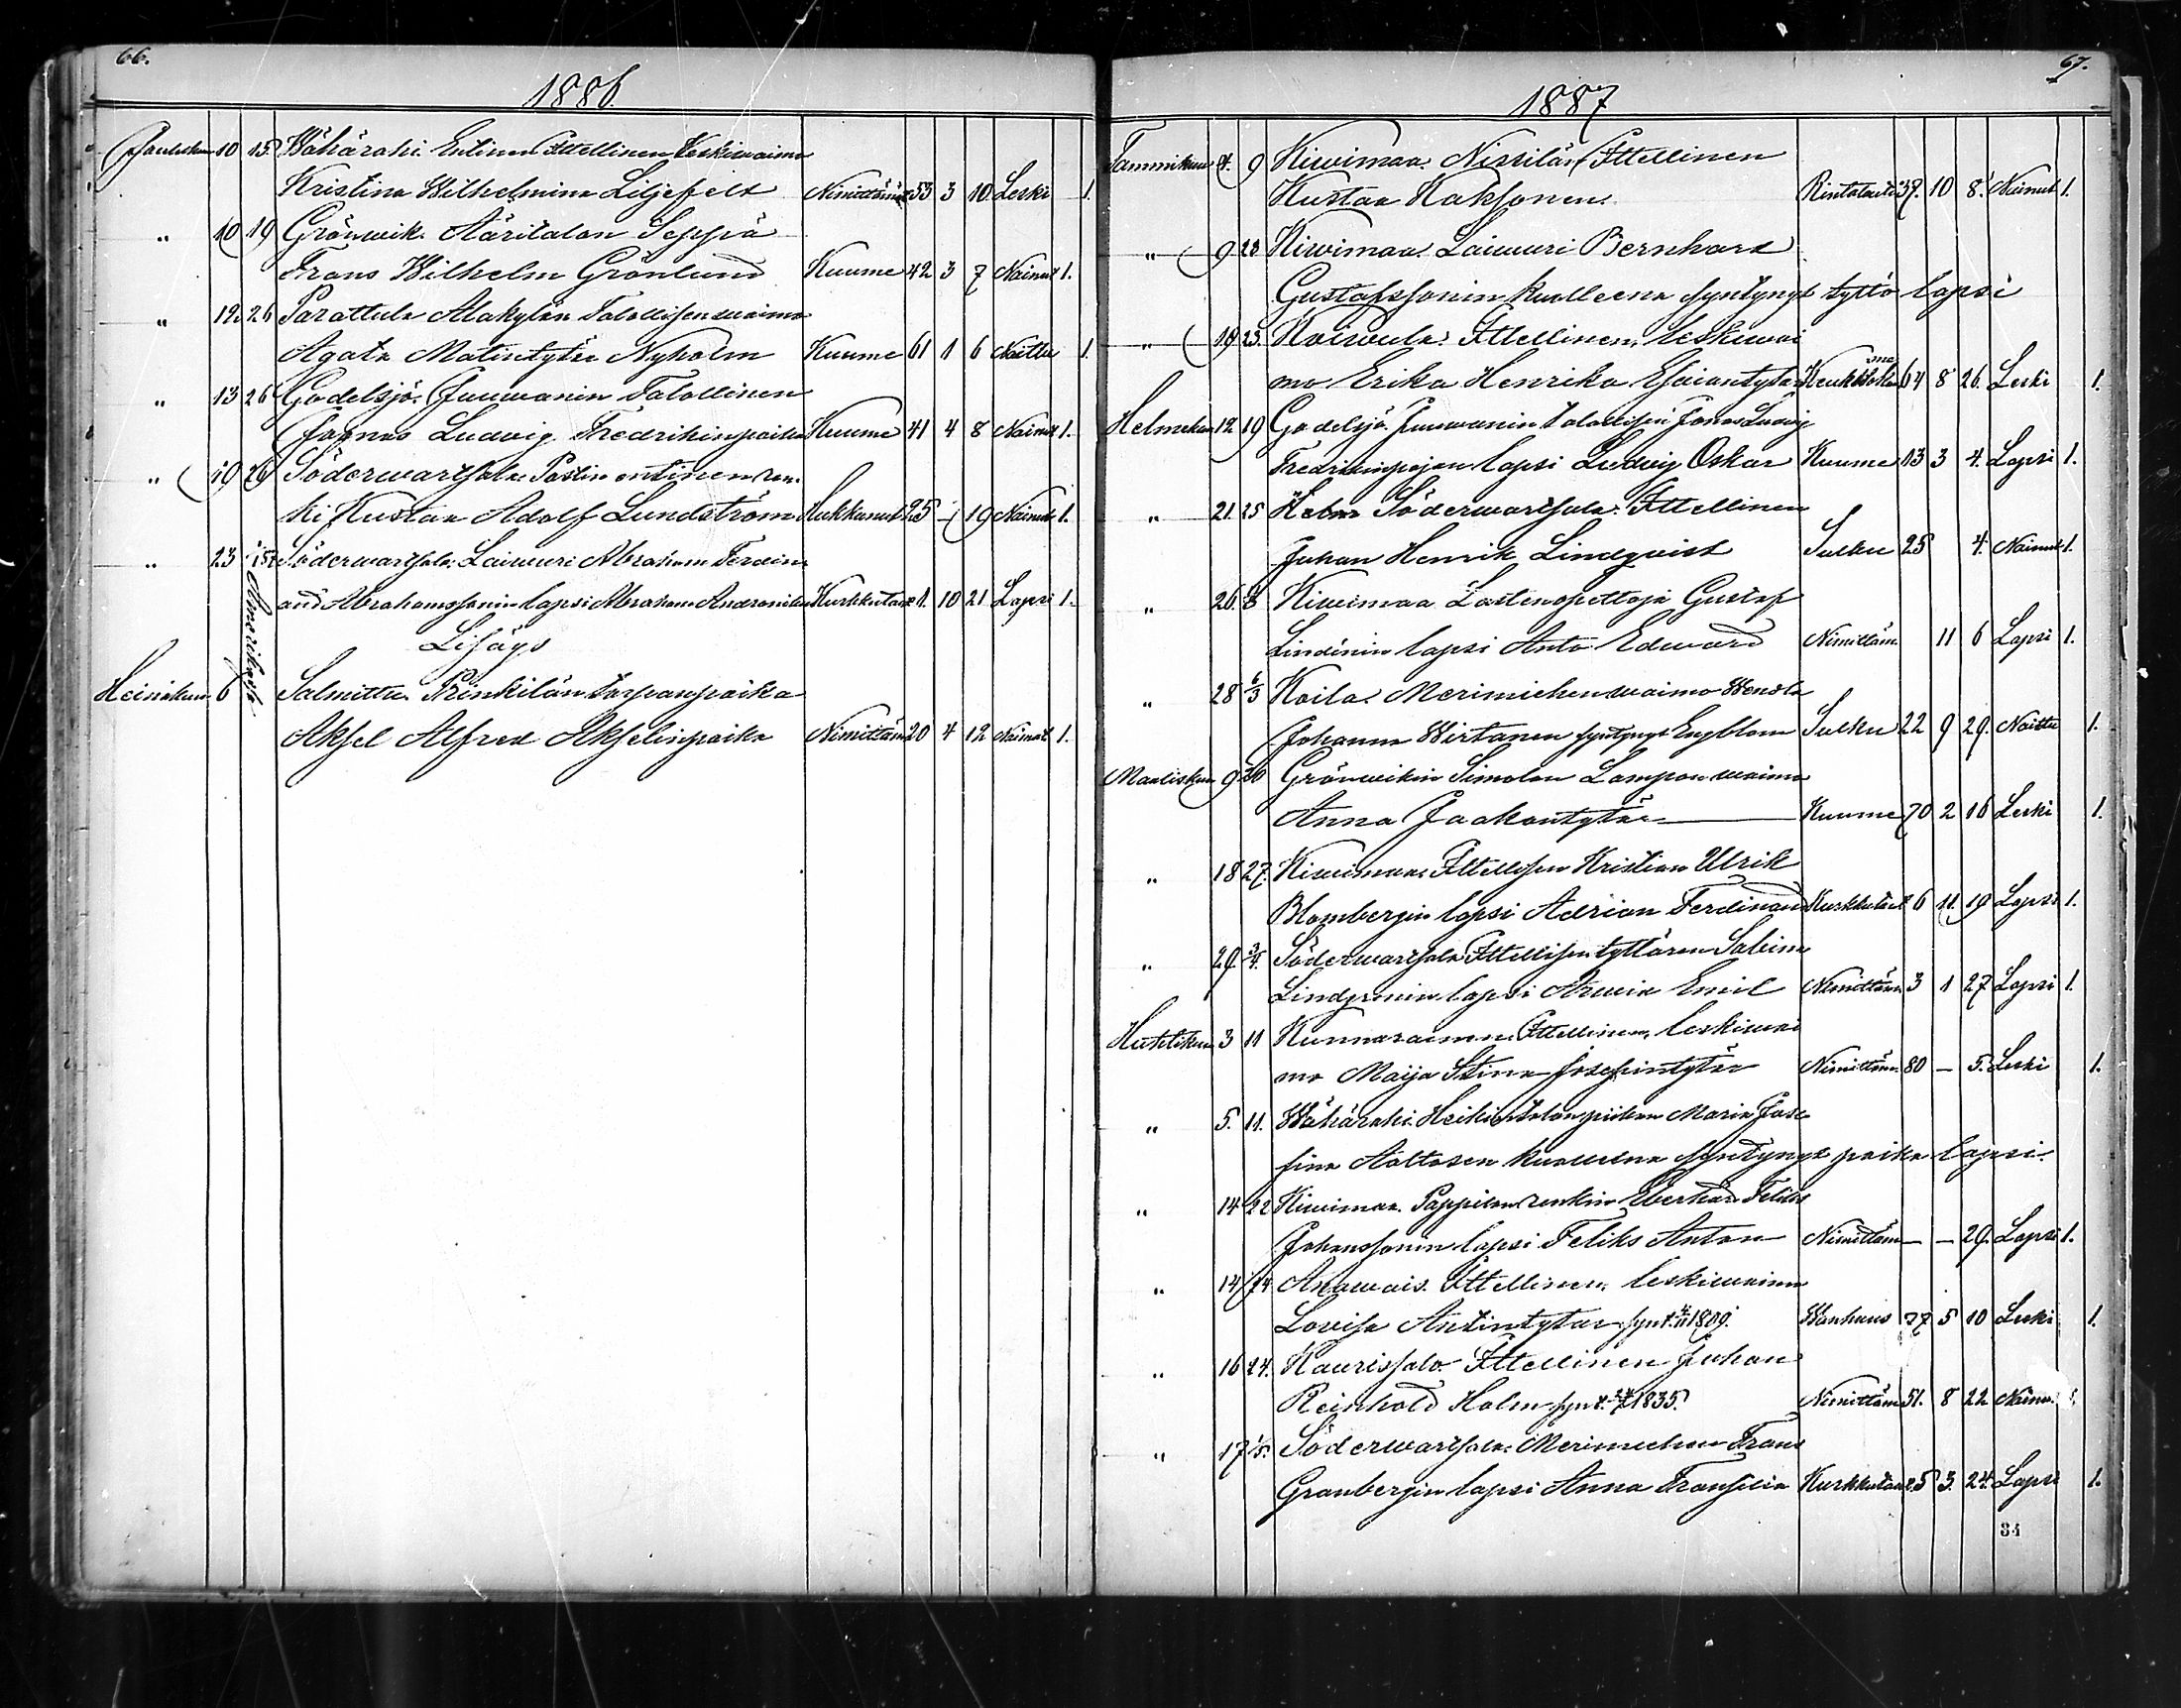 66.
1886
Jouluskuu 10 15 Wähäraki. Entinen Ittellinen Leskiwaimo
Kristina Wilhelmina Liljefelt Nimittämät. 53 3 10 Leski 1.
" 10 19 Grönwik. Ääritalon Seppä
Frans Wilhelm Grönlund Kuume 42 3 7 Nainut 1.
" 12 26 Parattula Alakylän Talollisen waimo
Agata Matintytär Nyholm Kuume 61 1 6 Naittu 1.
" 13 26 Godelsjö. Juuwanin Talollinen
Joonas Ludvig Fredrikinpoika Kuume 41 4 8 Nainut 1.
" 19 26 Söderwartsala Pastin entinen ren
ki Kustaa Adolf Lundström Hukkunut 25 – 19 Nainut 1.
" 23 Söderwartsala. Laiwuri Abraham Ferdin
and Abrahamssonin lapsi Abraham Andronikus Kurkkutaut 1. 10 21 Lapsi 1.
Amerikasta
Lisäys
Heinäkuu 6 Salmittu. Prinkilän torpanpoika
Aksel Alfred Akselinpoika Nimittäm 20 4 12 Naimat 1.
67.
1887
Tammikuu 4. 9 Kiwimaa. Nissilän Ittellinen
Kustaa Haksonen. Rintatauti 37. 10 8. Nainut 1.
" 9 23 Kiwimaa. Laiwuri Bernhard
Gustafssonin kuolleena syntynyt tyttö lapsi
" 19 23. Koiwula. Ittellinen, leskiwai
mo Erika Henrika Esaiantytär 64 8 26. Leski 1.
Helmikuu 12 19 Godelsjö. Juuwanin talollisen Jonas Ludvig
Fredrikinpojan lapsi Ludvig Oskar Kuume 13 3 4. Lapsi 1.
" 21. 25 Söderwartsala. Ittellinen
Juhan Henrik Lindqvist Sulku 25 4. Nainut 1.
" 26. Kiwimaa Lastenopettaja Gustaf
Lindénin lapsi Anto Edward Nimittäm. 11 6 Lapsi 1.
" 28 6/3 Koila. Merimiehen waimo Wendla
Johanna Wirtanen syntynyt Engblom Sulku 22 9 29. Naittu 1.
Maaliskuu 9 20 Grönwikin Simolan Lampon waimo
Anna Jaakontytär Kuume 70 2 16 Leski 1.
" 18 27. Kiwimaa. Ittellisen Kristian Ulrik
Blombergin lapsi Adrian Ferdinand Kurkkutaut 6 11. 19 Lapsi 1.
" 29. 3/4. Söderwartsala Ittellisen tyttären Sabina
Lindgrenin lapsi Arwid Emil Nimittäm. 3 1 27 Lapsi 1.
Huhtikuu 3 11 Kunnarainen. Ittellinen, leskiwai
mo Maija Stina Josefintytär Nimittäm. 80 – 5. Leski 1.
" 5. 11. Wähäraki. Heikin talon piikan Maria Jose
fina Aaltosen kuolleena syntynyt poika lapsi.
" 14 22 Kiwimaa. Pappilan renkin Eberhard Feliks
Johanssonin lapsi Feliks Anton Nimittäm – – 29. Lapsi 1.
" 14 24 Anawais. Ittellinen, leskiwaimo
Lovisa Antintytär synt. 4/11 1809. Wanhuus 77 5 10 Leski 1.
" 16 24. Kaurissalo Ittellinen Juhan
Reinhold Holm synt. 24/7 1835. Nimittäm 51. 8 22 Nainu.
" 17 1/5. Söderwartsala. Merimiehen Frans
Granbergin lapsi Anna Fransilia Kurkkutaut. 5 3. 24. Lapsi 1.
84